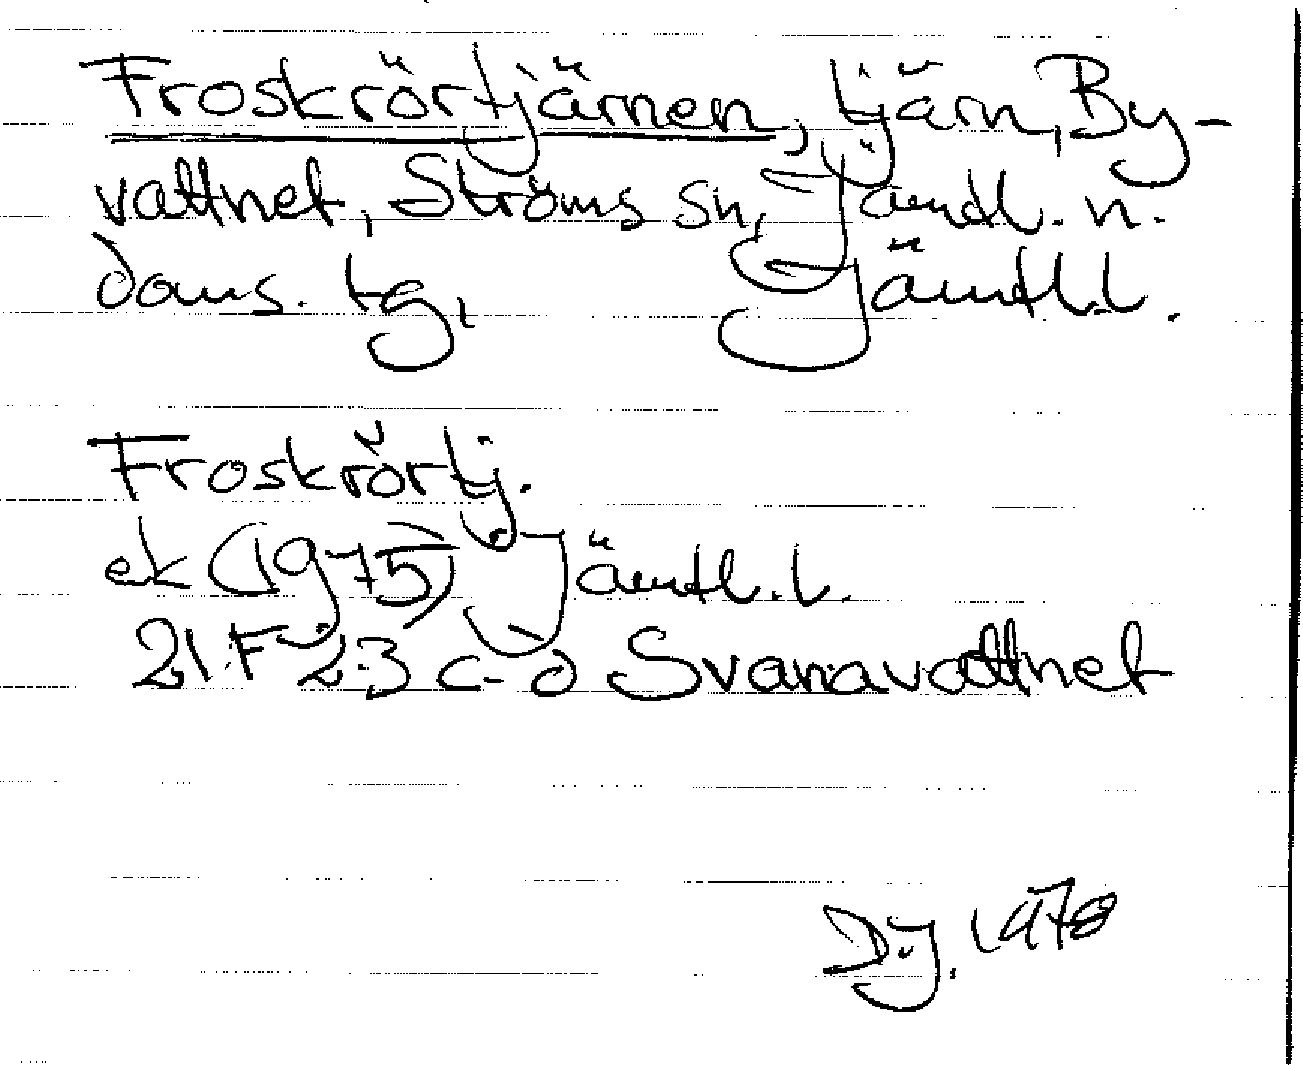 Froskrörtjärnen, tjärn, By-
vattnet, Ströms sn, Jämtl. n.
doms. tg, Jämtl.l.
Froskrörtj.
ek (1975) Jämtl.l.
21 F 2-3 c-d Svanavattnet
D.J. 1978